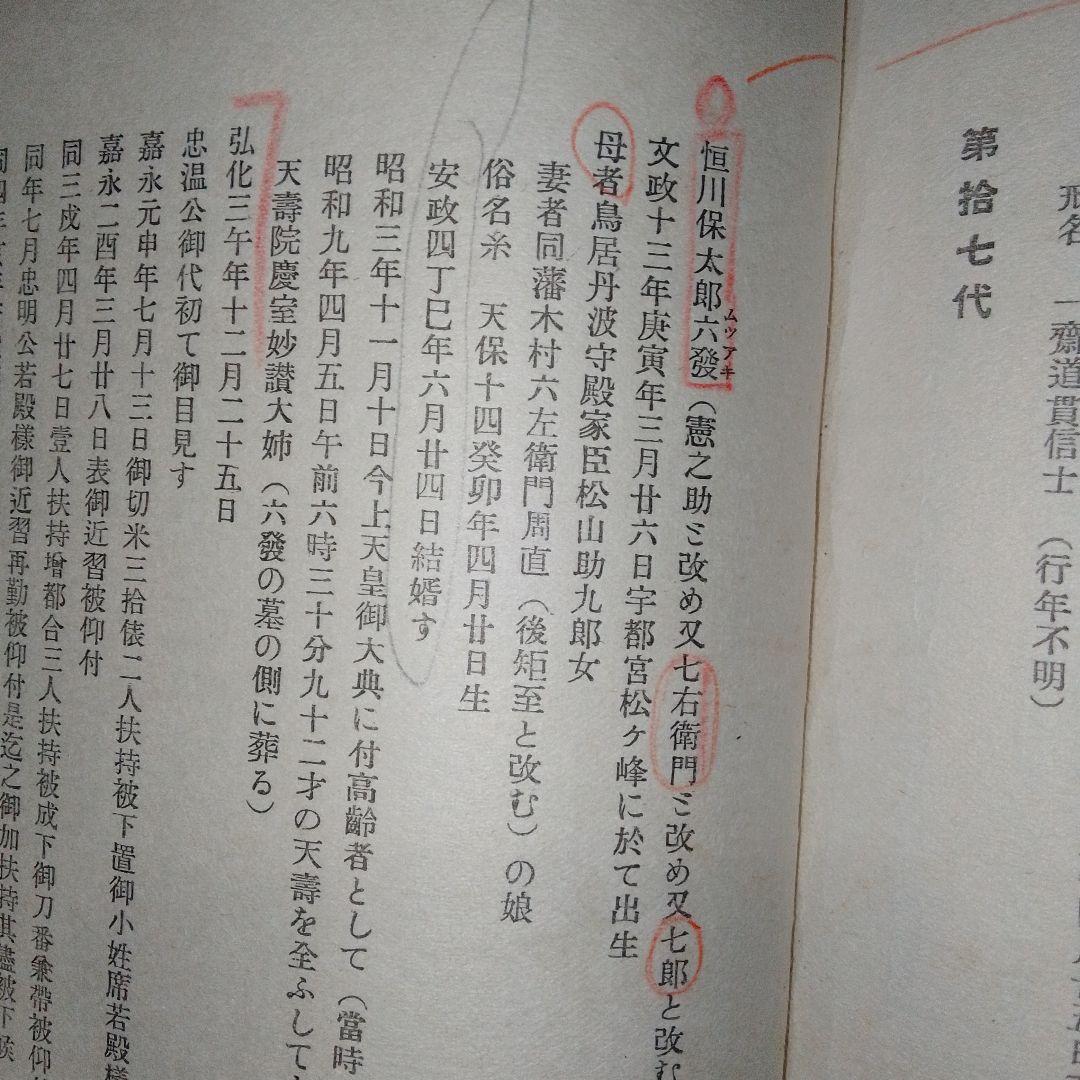 戒名 一齋道貫信士（行年不明）
第拾七代
恒川保太郎六發（憲之助ミ改め又七右衛門ミ改め又七郎と改む
ムツアキ
文政十三年庚寅年三月廿六日宇都宮松ケ峰に於て出生
母者鳥居丹波守殿家臣松山助九郎女
妻者同藩木村六左衛門周直（後矩至と改む）の娘
俗名糸 天保十四癸卯年四月廿日生
安政四丁巳年六月廿四日結婚す
昭和三年十一月十日今上天皇御大典に付高齢者として（當時
昭和九年四月五日午前六時三十分九十二才の天壽を全ふして
天壽院慶室妙讃大姉（六發の墓の側に葬る）
弘化三午年十二月二十五日
忠温公御代初て御目見す
嘉永元申年七月十三日御切米三拾俵二人扶持被下置御小姓席若殿樣
嘉永二酉年三月廿八日表御近習被仰付
同三戌年四月廿七日壹人扶持增都合三人扶持被成下御刀番兼帶被仰
同年七月忠明公若殿樣御近習再勤被仰付是迄之御加扶持其儘被下候